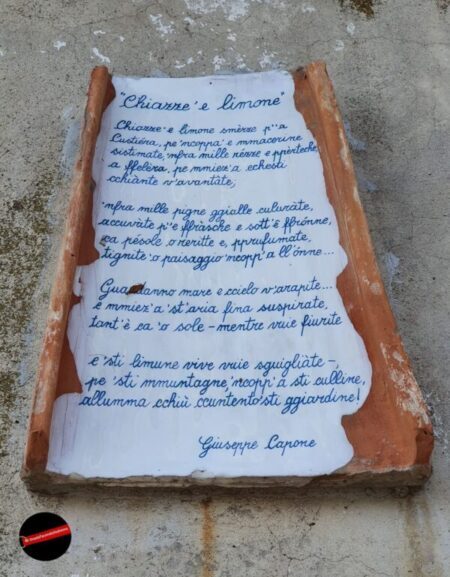 "Chiazze 'e limone"
Chiazze 'e limone smèrze p''a
Custiéra, pe 'ncoppa' e mmacerine
sistimate, 'nfra mille rézze e ppèrteche
a ffeléra, pe mmiez'a chesti
cchiànte v'avantate;
'nfra mille pigne ggialle culurate,
accuvate p''e ffràsche e sott'ê ffrónne,
ca pèsole, o reritte e, pprufumate,
tignite 'o paisaggio 'ncopp'a ll'ónne...
Guardanno mare e ccielo v'arapite...
e mmiez'a 'st'aria fina suspirate,
tant'è ca 'o sole - mentre vuie fiurite
e 'sti limune vive vuie sguigliate -,
pe 'sti mmuntagne 'ncopp'a sti culline,
allumma cchiù ccuntento 'sti ggiardine!
Giuseppe Capone